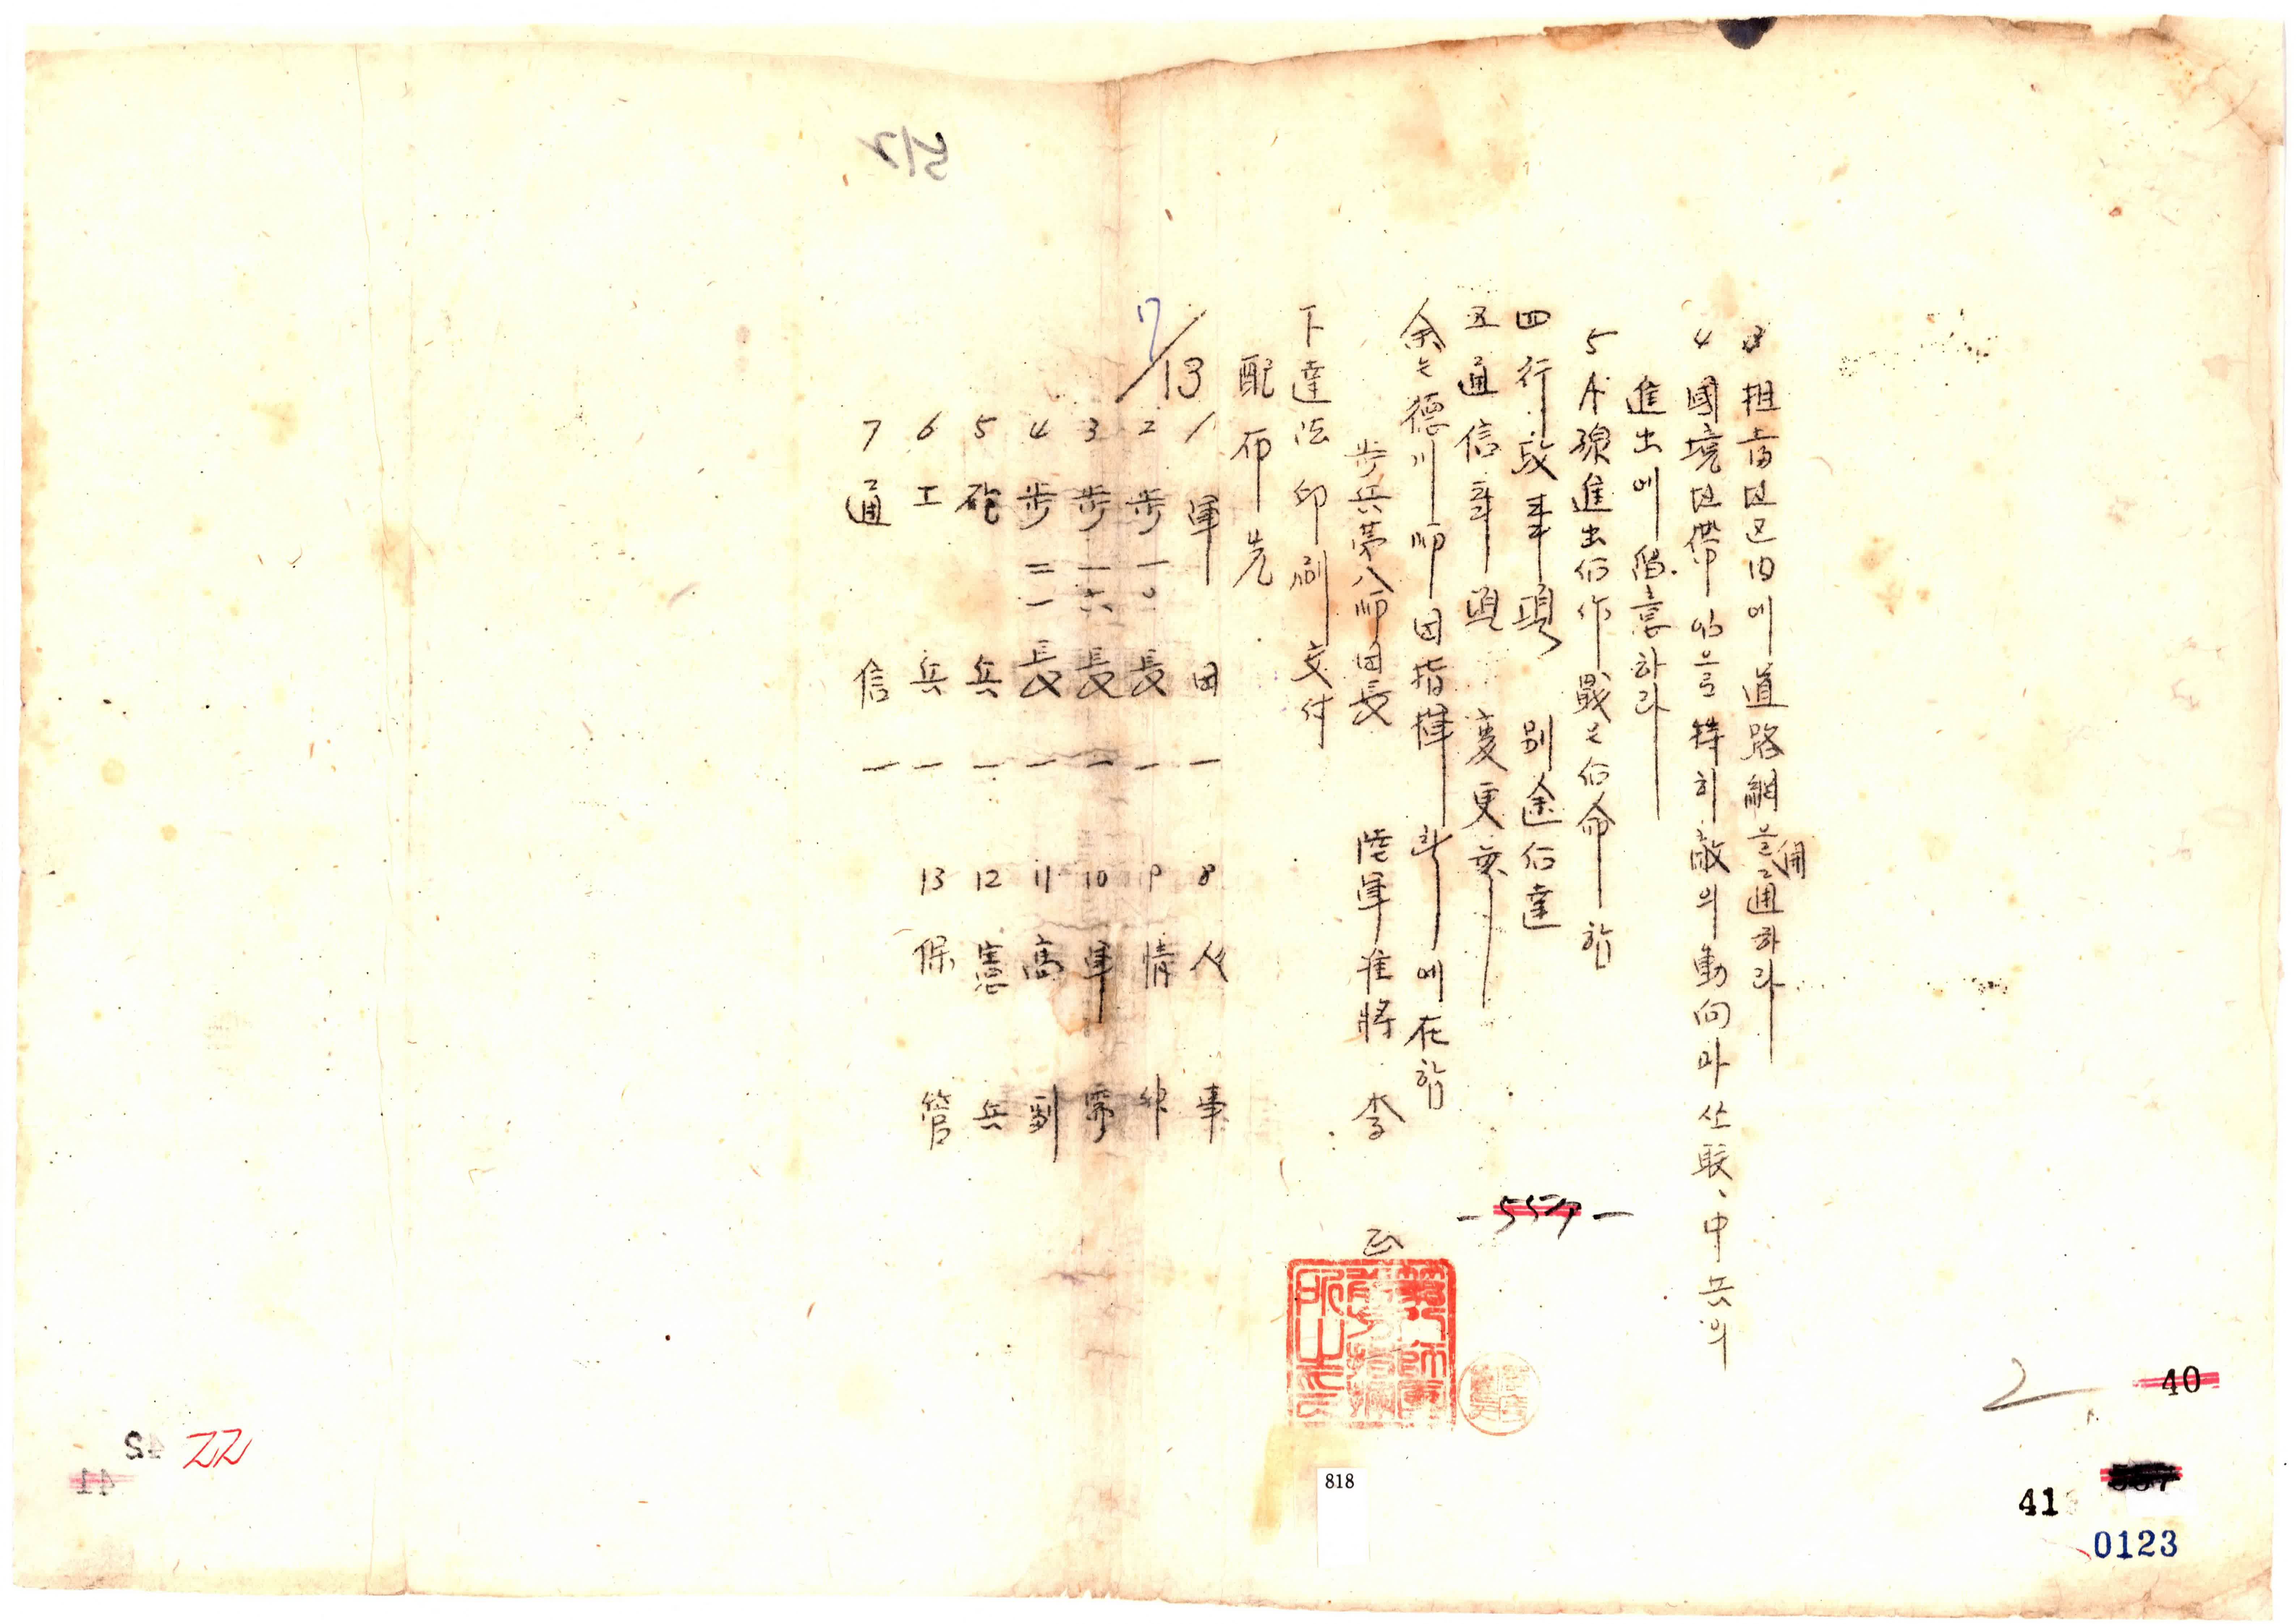 3 担當地区内에道路網을開通하라
4 國境地帶임으로特히敵의動向과쏘联、中共의
進出에留意하라
5 A'線進出后作戰은后命함
四 行政事項 別途后達
五 通信事項 変更無
余는德川師団指揮所에在함
步兵第八師団長 陸軍准將 李
下達法 印刷交付
配布先
7/13
1 軍団 一
2 步一〇長 一
3 步一六長 一
4 步二一長 一
5 砲兵 一
6 工兵 一
7 通信 一
8 人事
9 情
10 軍需
11 高副
12 憲兵
13 保管
512
- 557 -
2
40
41
0123
818
22
42
41